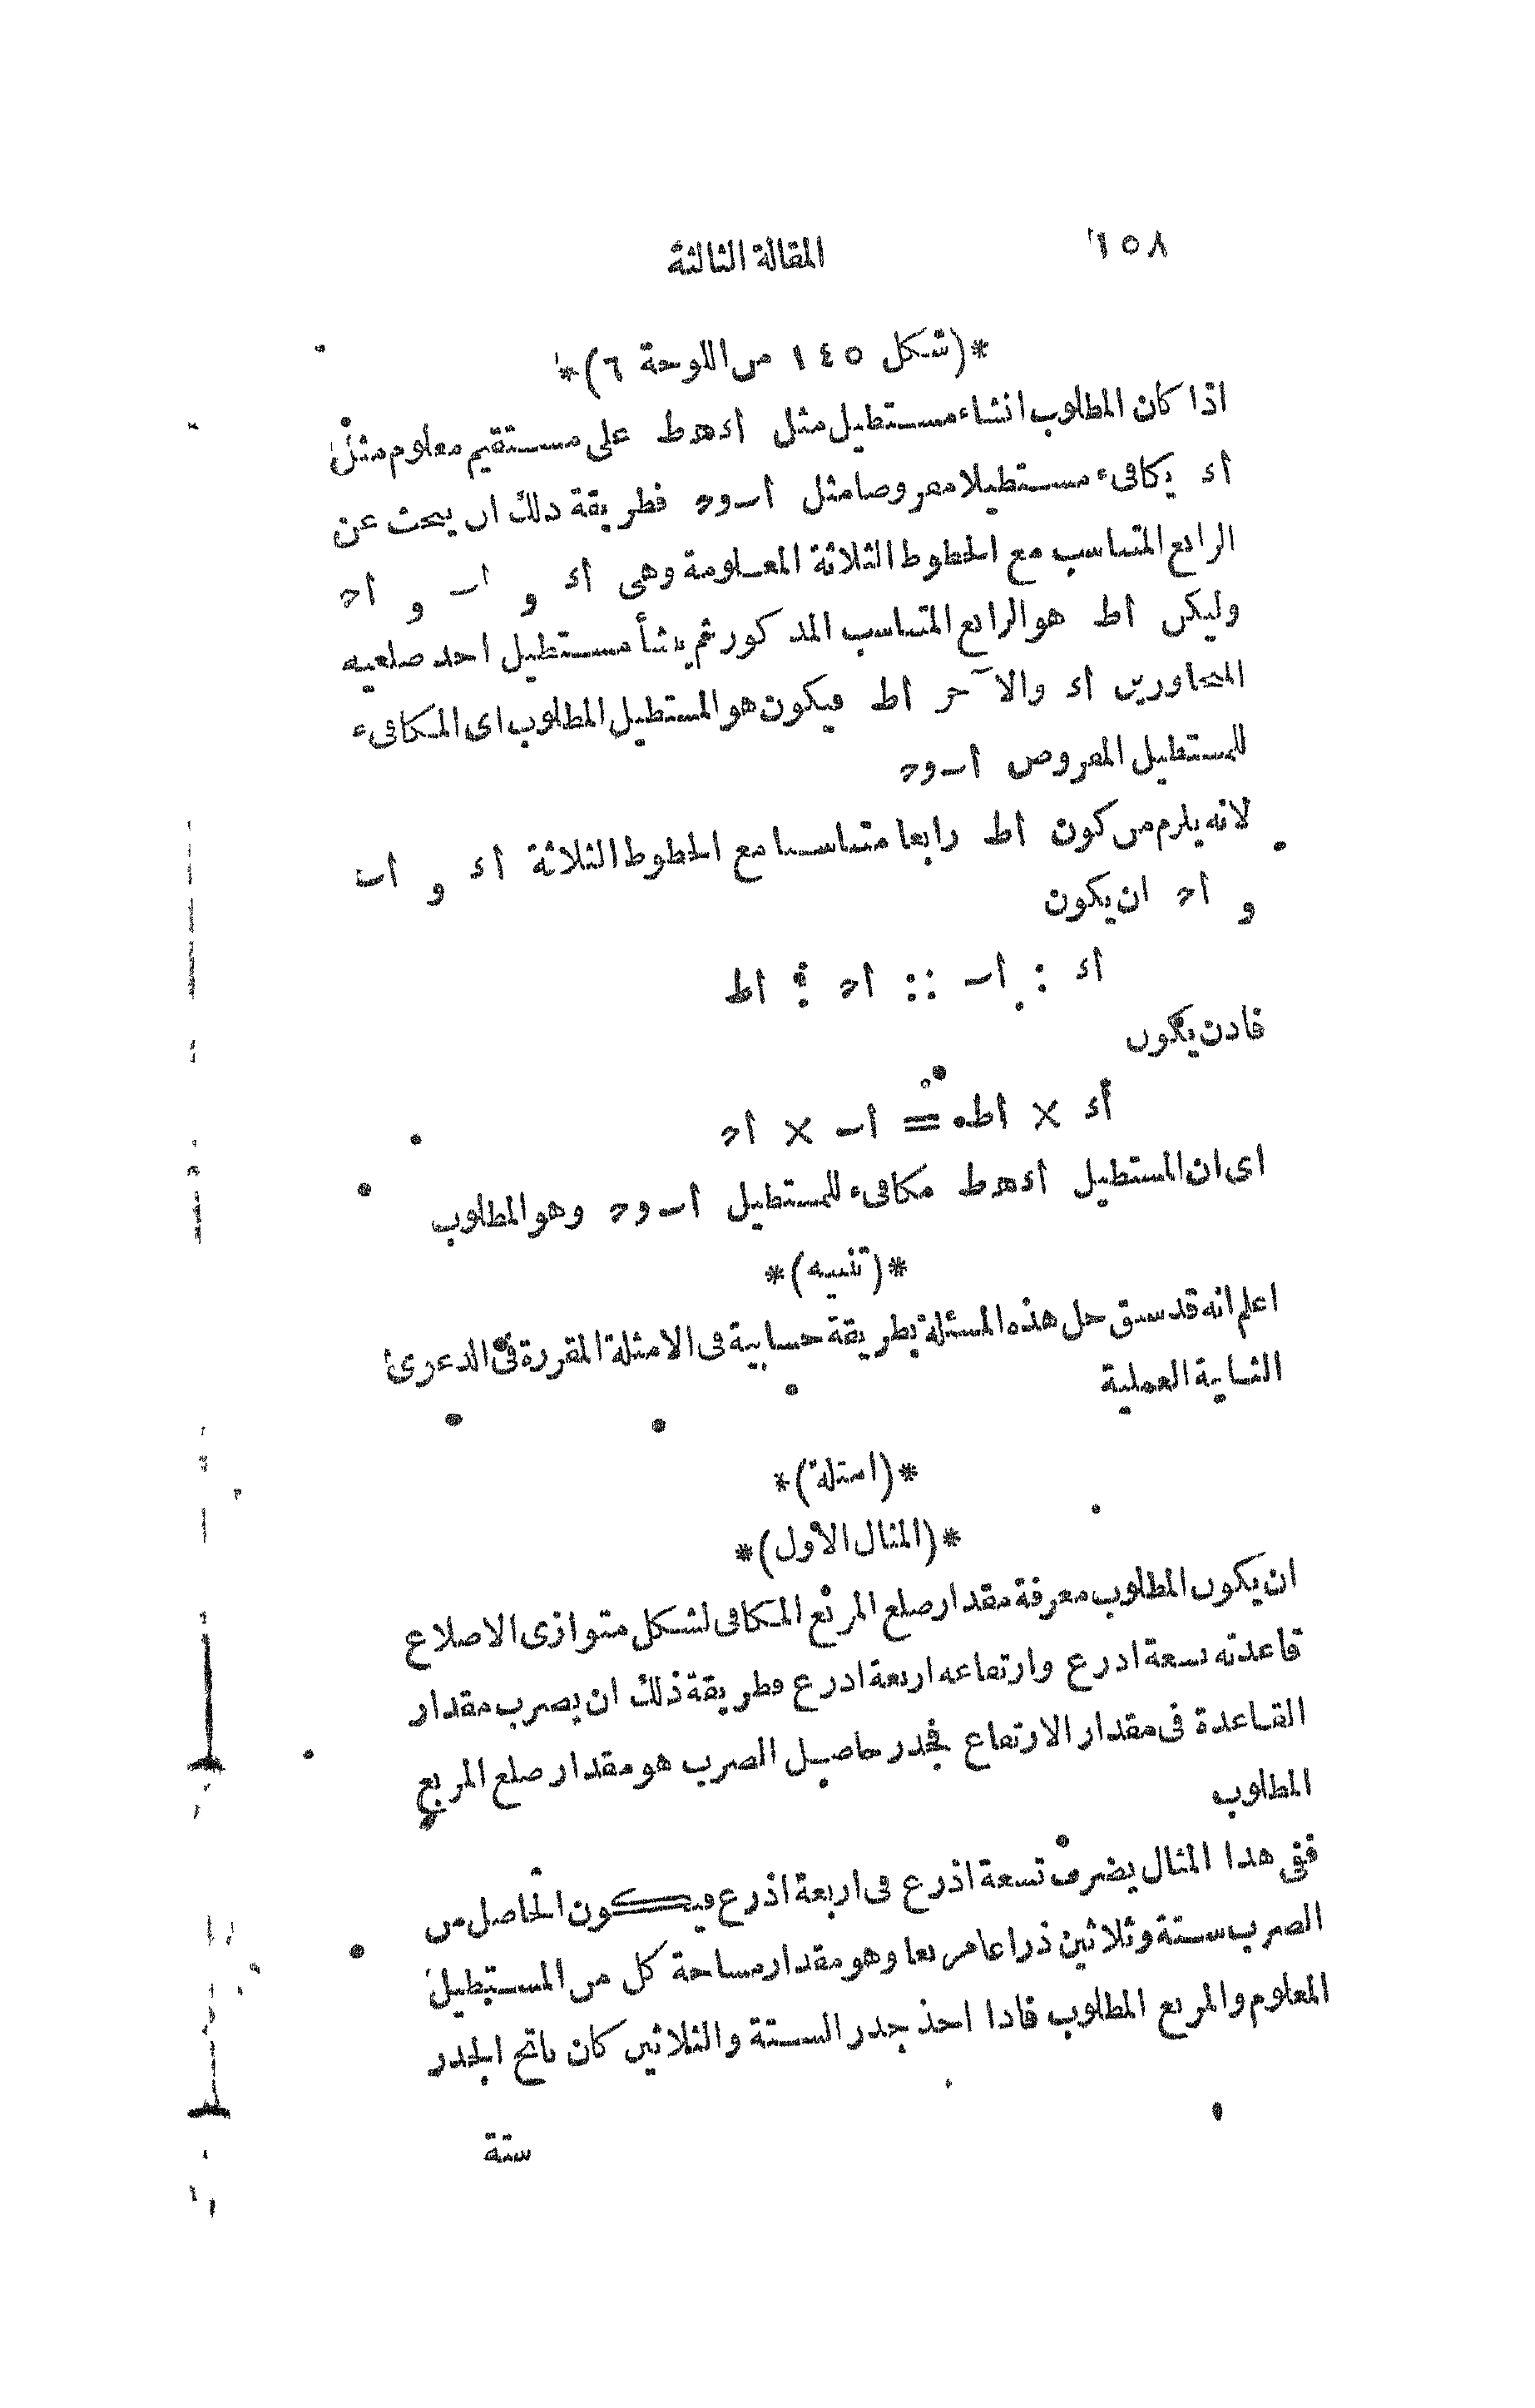 ١٥٨
المقالة الثالثة
*(شكل ١٤٥ من اللوحة ٦)*
اذا كان المطلوب انشاء مستطيل مثل اءهط على مستقيم معلوم مثل
اء يكافىء مستطيلا معروضا مثل اب و ح فطريقة ذلك ان يبحث عن
الرابع المتناسب مع الخطوط الثلاثة المعلومة وهى اء و اب و اح
وليكن اط هو الرابع المتناسب المذكور ثم ينشأ مستطيل احد ضلعيه
المتجاورين اء والآخر اط فيكون هو المستطيل المطلوب اى المكافىء
للمستطيل المفروض اب و ح
لانه يلزم من كون اط رابعا متناسبا مع الخطوط الثلاثة اء و اب
و اح ان يكون
اء : اب :: اح : اط
فاذن يكون
اء × اط = اب × اح
اى ان المستطيل اءهط مكافىء للمستطيل اب و ح وهو المطلوب
*(تنبيه)*
اعلم انه قد سبق حل هذه المسئلة بطريقة حسابية فى الامثلة المقررة فى الدعوى
الثانية العملية
*(امثلة)*
*(المثال الاول)*
ان يكون المطلوب معرفة مقدار ضلع المربع المكافى لشكل متوازى الاضلاع
قاعدته تسعة اذرع وارتفاعه اربعة اذرع فطريقة ذلك ان يضرب مقدار
القاعدة فى مقدار الارتفاع فجذر حاصل الضرب هو مقدار ضلع المربع
المطلوب
ففى هذا المثال يضرب تسعة اذرع فى اربعة اذرع فيكون الحاصل من
الضرب ستة وثلاثين ذراعا مربعا وهو مقدار مساحة كل من المستطيل
المعلوم والمربع المطلوب فاذا اخذ جذر الستة والثلاثين كان ناتج الجذر
ستة